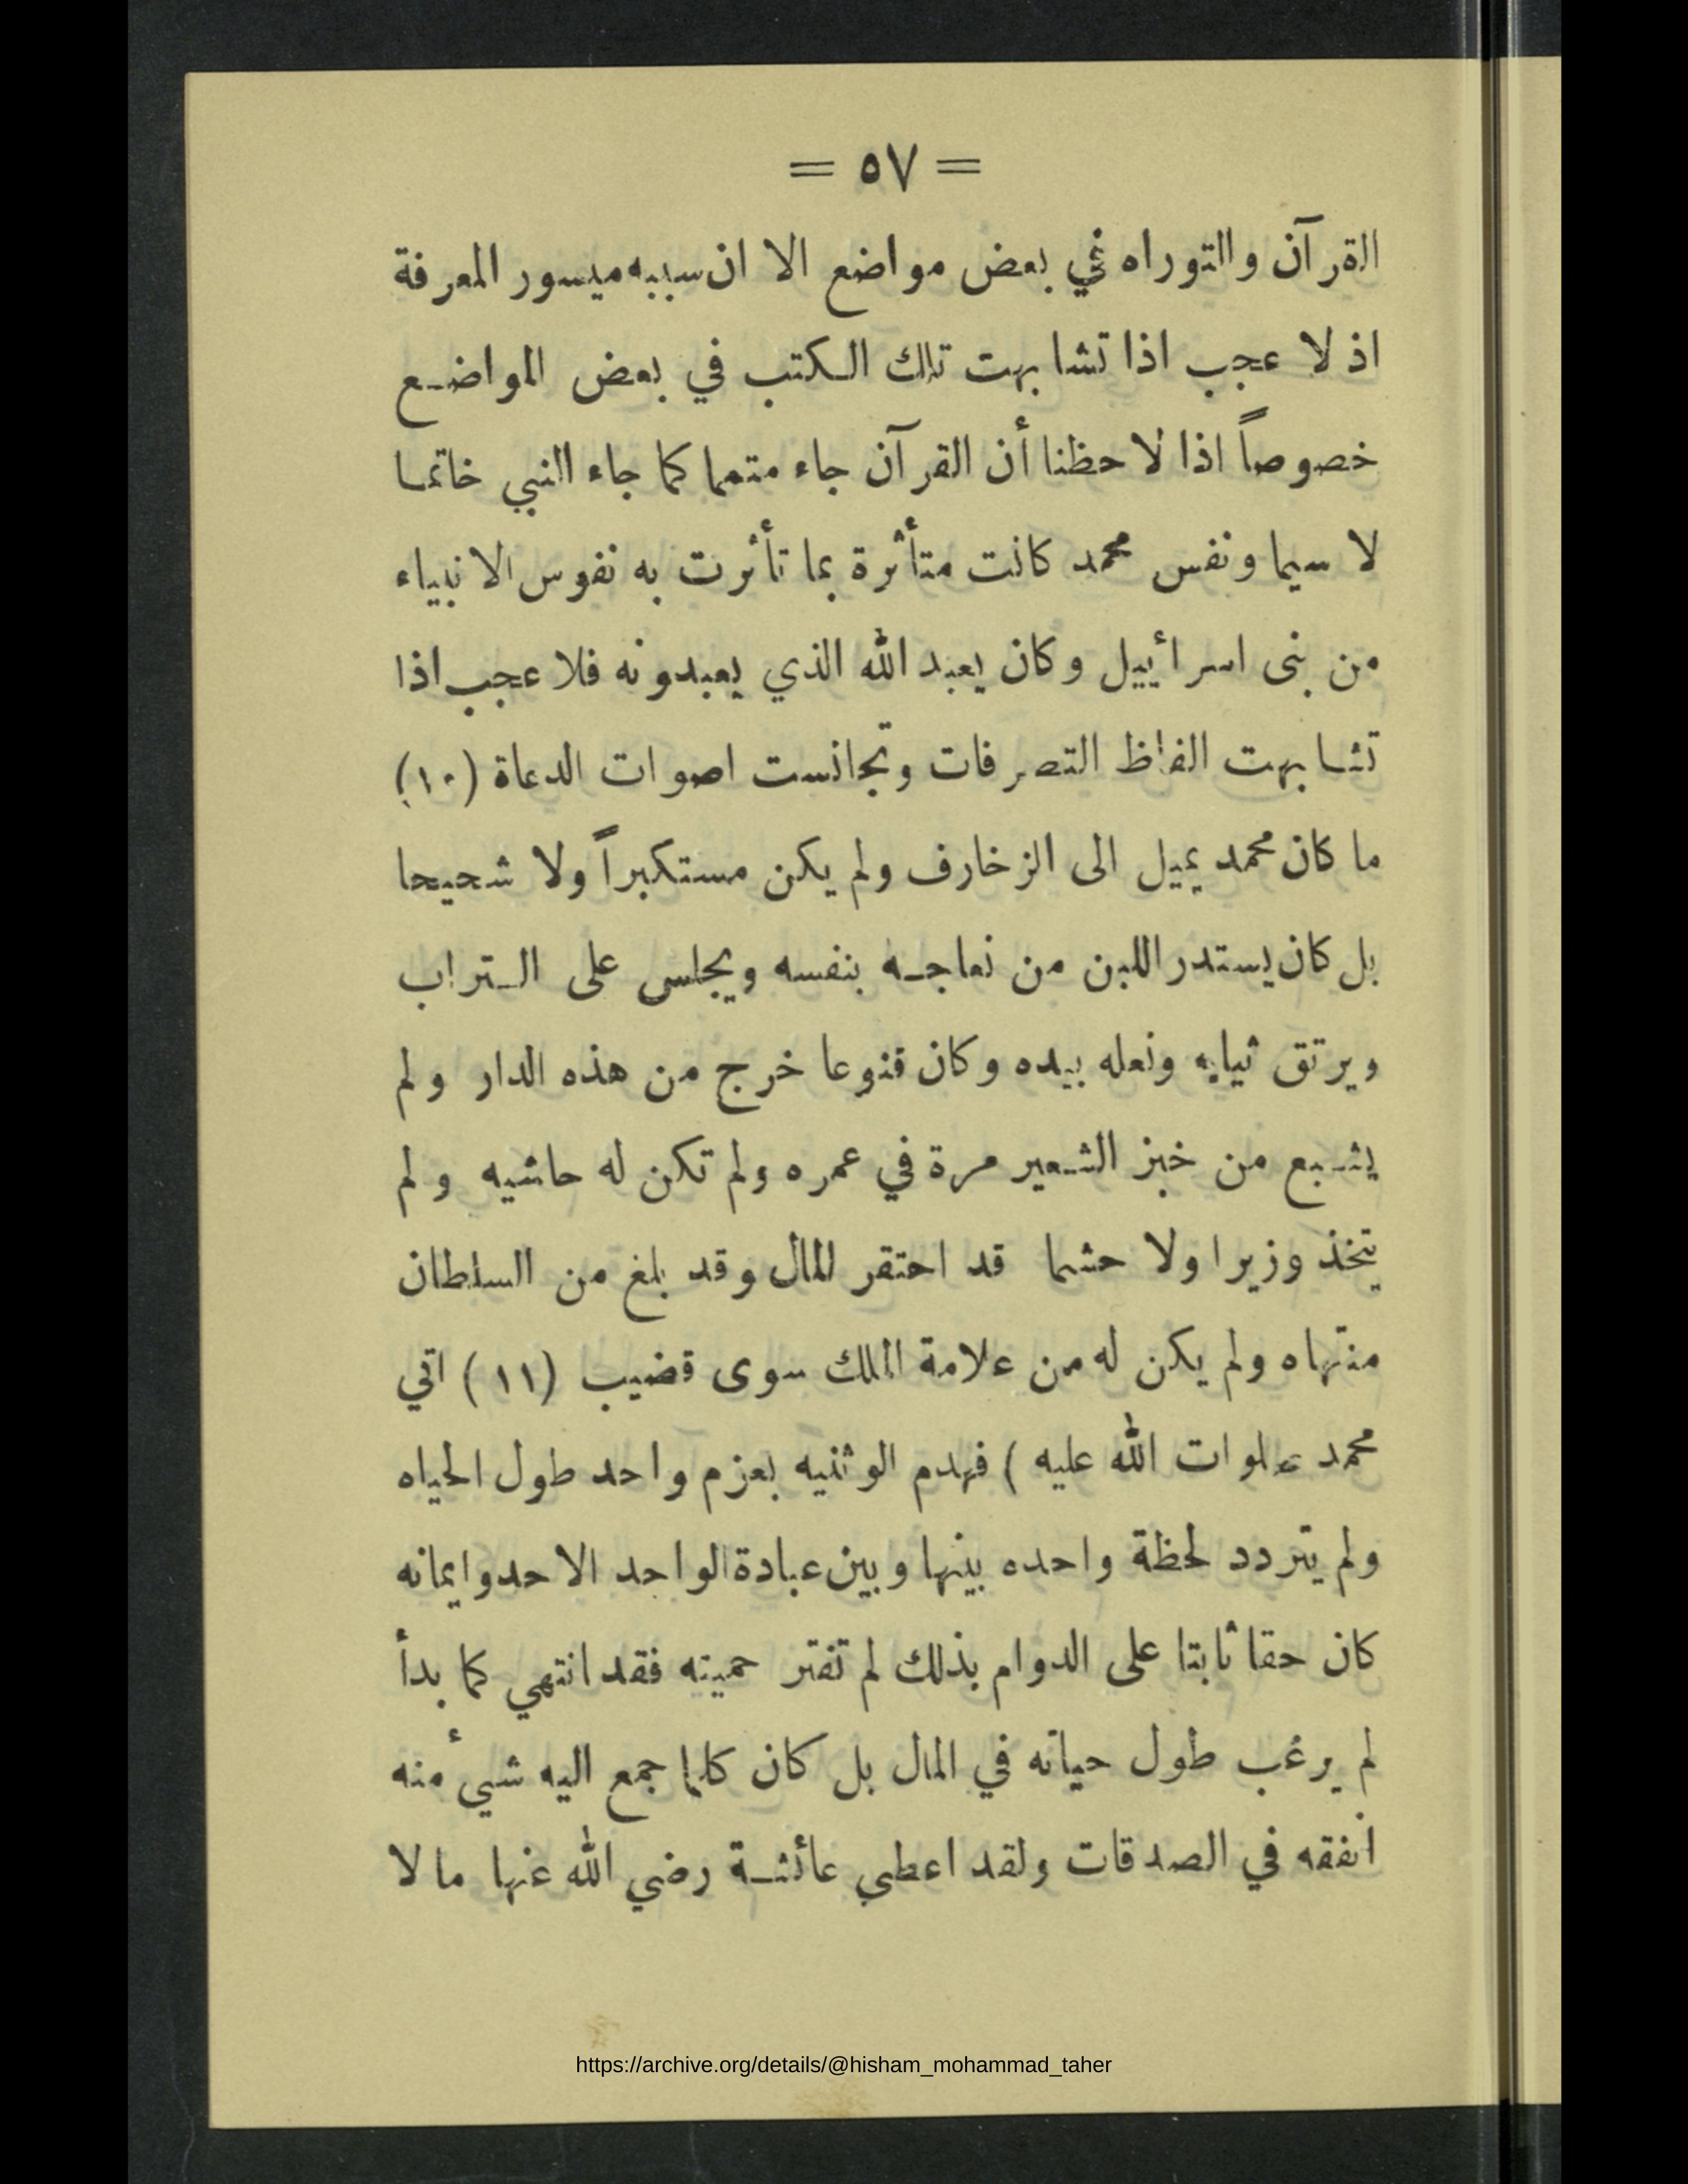 = ٥٧ =
القرآن والتوراه في بعض مواضع الا ان سببه ميسور المعرفة
اذ لا عجب اذا تشابهت تلك الكتب في بعض المواضع
خصوصاً اذا لاحظنا أن القرآن جاء متمما كما جاء النبي خاتما
لا سيما ونفس محمد كانت متأثرة بما تأثرت به نفوس الانبياء
من بنى اسرائيل وكان يعبد الله الذي يعبدونه فلا عجب اذا
تشابهت الفاظ التصرفات وتجانست اصوات الدعاة (١٠)
ما كان محمد يميل الى الزخارف ولم يكن مستكبراً ولا شحيحا
بل كان يستدر اللبن من نعاجه بنفسه ويجلس على التراب
ويرتق ثيابه ونعله بيده وكان قنوعا خرج من هذه الدار ولم
يشبع من خبز الشعير مرة في عمره ولم تكن له حاشيه ولم
يتخذ وزيرا ولا حشما قد احتقر المال وقد بلغ من السلطان
منتهاه ولم يكن له من علامة الملك سوى قضيب (١١) اتي
محمد صلوات الله عليه ) فهدم الوثنيه بعزم واحد طول الحياه
ولم يتردد لحظة واحده بينها وبين عبادة الواحد الاحد وايمانه
كان حقا ثابتا على الدوام بذلك لم تفتر حميته فقد انتهي كما بدأ
لم يرغب طول حياته في المال بل كان كلما جمع اليه شيء منه
انفقه في الصدقات ولقد اعطي عائشة رضي الله عنها ما لا
https://archive.org/details/@hisham_mohammad_taher